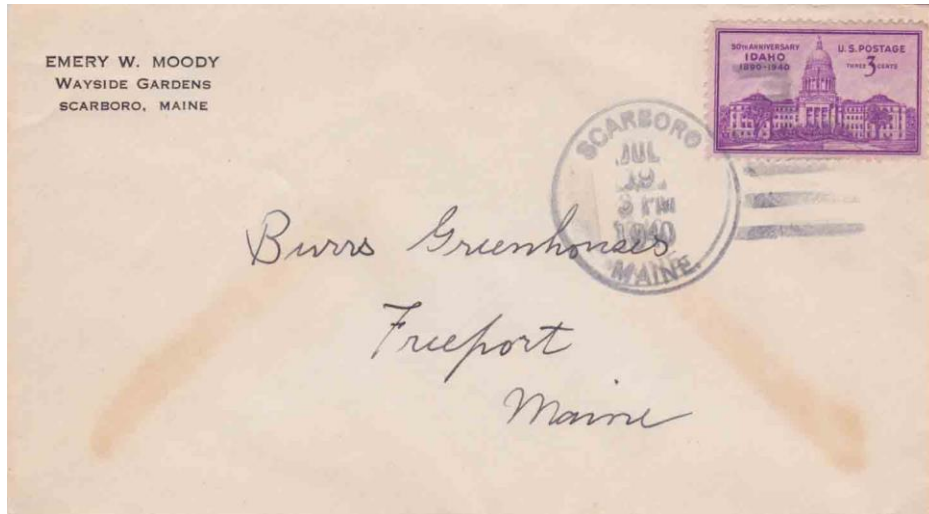 EMERY W. MOODY
WAYSIDE GARDENS
SCARBORO, MAINE
50TH ANNIVERSARY
IDAHO
1890-1940
U.S. POSTAGE
THREE 3 CENTS
SCARBORO
JUL
19
3 PM
1940
MAINE.
Burrs Greenhouses
Freeport
Maine